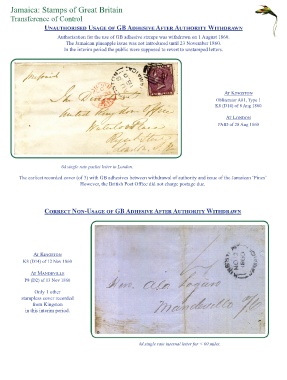 Jamaica: Stamps of Great Britain
Transference of Control
UNAUTHORISED USAGE OF GB ADHESIVE AFTER AUTHORITY WITHDRAWN
Authorisation for the use of GB adhesive stamps was withdrawn on 1 August 1860.
The Jamaican pineapple issue was not introduced until 23 November 1860.
In the interim period the public were supposed to revert to unstamped letters.
AT KINGSTON
Obliterator A01, Type 1
K8 (D14) of 8 Aug 1860
AT LONDON
PAID of 28 Aug 1860
prepaid
The
United
Office
Waterloo Place
6d single rate packet letter to London.
The earliest recorded cover (of 3) with GB adhesives between withdrawal of authority and issue of the Jamaican 'Pines'
However, the British Post Office did not charge postage due.
CORRECT NON-USAGE OF GB ADHESIVE AFTER AUTHORITY WITHDRAWN
AT KINGSTON
K5 (D14) of 13 Nov 1860
AT MANDEVILLE
P9 (D2) of 13 Nov 1860
Only 1 other
stampless cover recorded
from Kingston
in this interim period.
Hon. Alex Logan
Mandeville P.O.
4d single rate internal letter for < 60 miles.